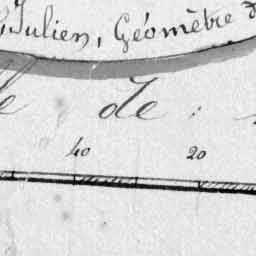 Julien, Géomètre d
le de
40 20